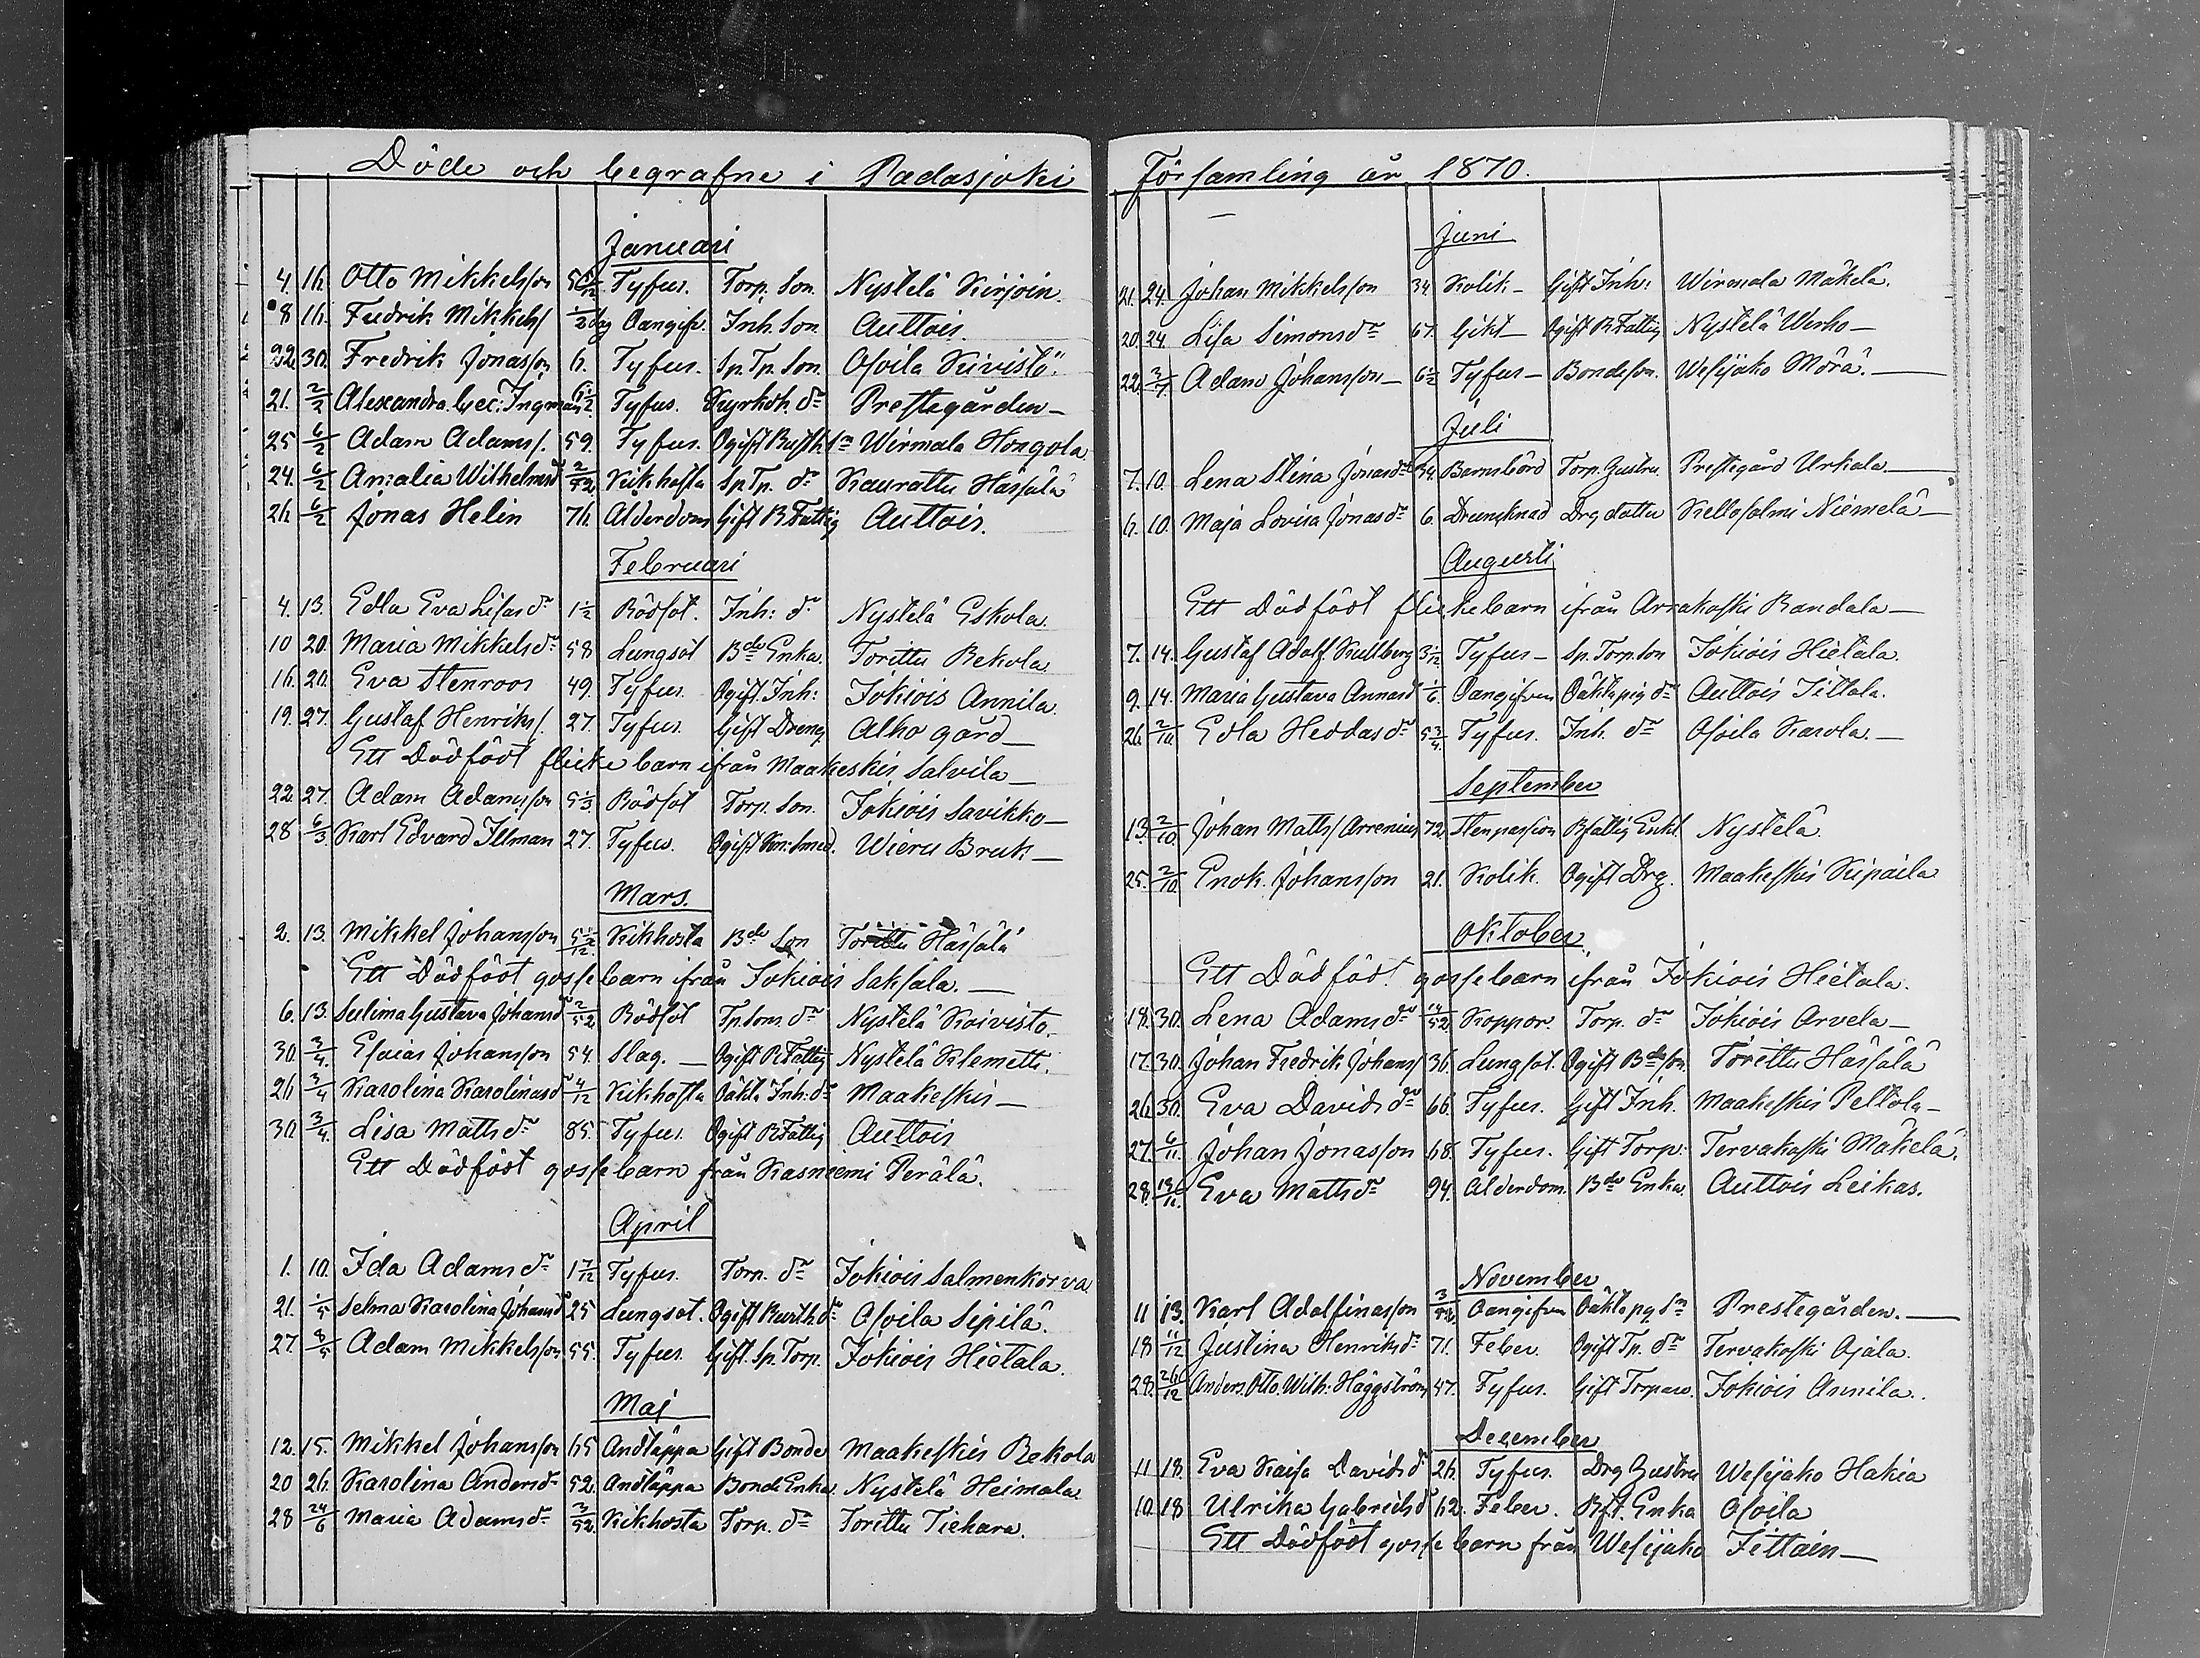 Döde och begrafne i Padasjoki
Januari
4. 16. Otto Mikkelsson 5 5/12 Tyfus. Torp. Son. Nystelä Kirjoin.
8 16. Fredrik Mikkels/ 1/2 dag Oangifv. Inh. Son. Auttois.
22. 30. Fredrik Jonasson 6. Tyfus. Sp. Tp. Son. Osoila Kivistö.
21. 2/2 Alexandra Cec: Ingman 6 1/2 Tyfus. Kyrkoh. dr Prestegården
25 6/2 Adam Adams/. 59. Tyfus. Ogift Rusth. Sn Wirmala Hongola
24. 6/2 Amalia Wilhelmsd 2/52 Kikhosta Sp. Tp. dr Kaurattu Hässälä
26. 6/2 Jonas Helin 76. Ålderdom Gift R. Fattig Auttois.
Februari
4. 13. Edla Eva Lisas dr 1 1/2 Rödsot. Inh: dr Nystelä Eskola.
10 20. Maria Mikkels dr 58 Lungsot Bde Enka. Torittu Rekola
16. 20. Eva Stenroos 49. Tyfus. Ogift. Inh: Jokiois Annila.
19. 27. Gustaf Henriks/. 27. Tyfus. Gift Dreng Alho gård
Ett Dödfödt flickebarn ifrån Maakeskis Salvila
22. 27. Adam Adamsson 5 1/3 Rödsot Torp. Son. Jokiois Savikko
28 6/3 Karl Edvard Illman 27. Tyfus. Ogift Smed. Wieru Bruk
Mars.
2. 13. Mikkel Johansson 5 1/2/12. Kikhosta Bde Son Torittu Hässälä
Ett Dödfödt gossebarn ifrån Jokiois Saksala.
6. 13. Selima Gustava Johansd 2/52 Rödsot Tp. Sons. dr Nystelä Koivisto.
30. 3/4. Esaias Johansson 54. Slag. Ogift R. Fattig Nystelä Klemetti.
26 3/4 Karolina Karolinasd 4/12 Kikhosta Oäkta Inh: dr Maakeskis
30. 3/4. Lisa Matts dr 85. Tyfus. Ogift R. Fattig Auttois
Ett Dödfödt gossebarn från Kasniemi Perälä.
April
1. 10. Ida Adams dr 1 7/12 Tyfus. Torp. dr Jokiois Salmenkorva
21. 1/5 Selma Karolina Johansd 25 Lungsot. Ogift Rusth. dr Osoila Sipilä.
27. 8/5 Adam Mikkelsson 55. Tyfus. Gift. Sp. Torp. Jokiois Hietala.
Maj
12. 15. Mikkel Johansson 65. Andtäppa Gift Bonde Maakeskis Rekola
20 26. Karolina Andersd 52. Andtäppa Bonde Enka. Nystelä Heimala
28 24/6 Maria Adams dr 3/52. Kikhosta Torp. dr Torittu Tiehara.
Församling år 1870.
Juni
21. 24. Johan Mikkelsson 34. Kolik Gift Inh: Wirmala Mäkelä.
20. 24. Lisa Simons dr 67. Gikt Ogift R. Fattig Nystelä Werho
22. 3/7. Adam Johansson 6 1/2 Tyfus Bondeson. Wesijako Mörä.
Juli
7. 10. Lena Stina Jonasdr 34. Barnsbörd Torp. Hustru. Prestegård Urkala
6. 10. Maja Lovisa Jonasdr 6. Drunknad Drg dotter Kellosalmi Niemelä
Augusti
Ett Dödfödt flickebarn ifrån Arrakoski Randala
7. 14. Gustaf Adolf Kullberg 3 1/12 Tyfus Sp. Torp. Son Jokiois Hietala.
9. 14. Maria Gustava Annasd 1/6. Oangifven Oäkta pig dr Auttois Tittola.
26. 2/10. Edla Heddas dr 5 3/4. Tyfus. Inh. dr Osoila Karola.
September
13. 2/10. Johan Matts/ Arrenius 72. Stenpassion Rfattig Enkl. Nystelä
25. 2/10. Enok. Johansson 21. Kolik. Ogift Drg. Maakeskis Kipaila
Oktober
Ett Dödfödt gossebarn ifrån Jokiois Hietala.
18. 30. Lena Adams dr 14/52 Koppor. Torp. dr Jokiois Arvela
17. 30. Johan Fredrik Johans/ 36. Lungsot. Ogift Bde son. Torittu Hässälä
26. 30. Eva Davids dr 66. Tyfus. Gift Inh. Maakeskis Peltola
27. 6/11. Johan Jonasson 68. Tyfus. Gift Torp. Tervakoski Mäkelä.
28. 13/11. Eva Matts dr 94. Ålderdom. Bde Enka. Auttois Leikas.
November
11 13. Karl Adolfinasson 3/52 Oangifven Oäkta pg Sn Prestegården.
18 11/12 Justina Henriks dr 71. Feber. Ogift Tp. dr Tervakoski Ojala.
28. 26/12 Anders. Otto. Wilh: Häggström 47. Tyfus. Gift Torpare. Jokiois Annila.
December
11 18. Eva Kaisa Davids dr 26. Tyfus. Drg Hustru Wesijako Hakia
10. 18 Ulrika Gabrielsd 62. Feber. Rft. Enka Osoila
Ett Dödfödt gossebarn från Wesijako Jittain